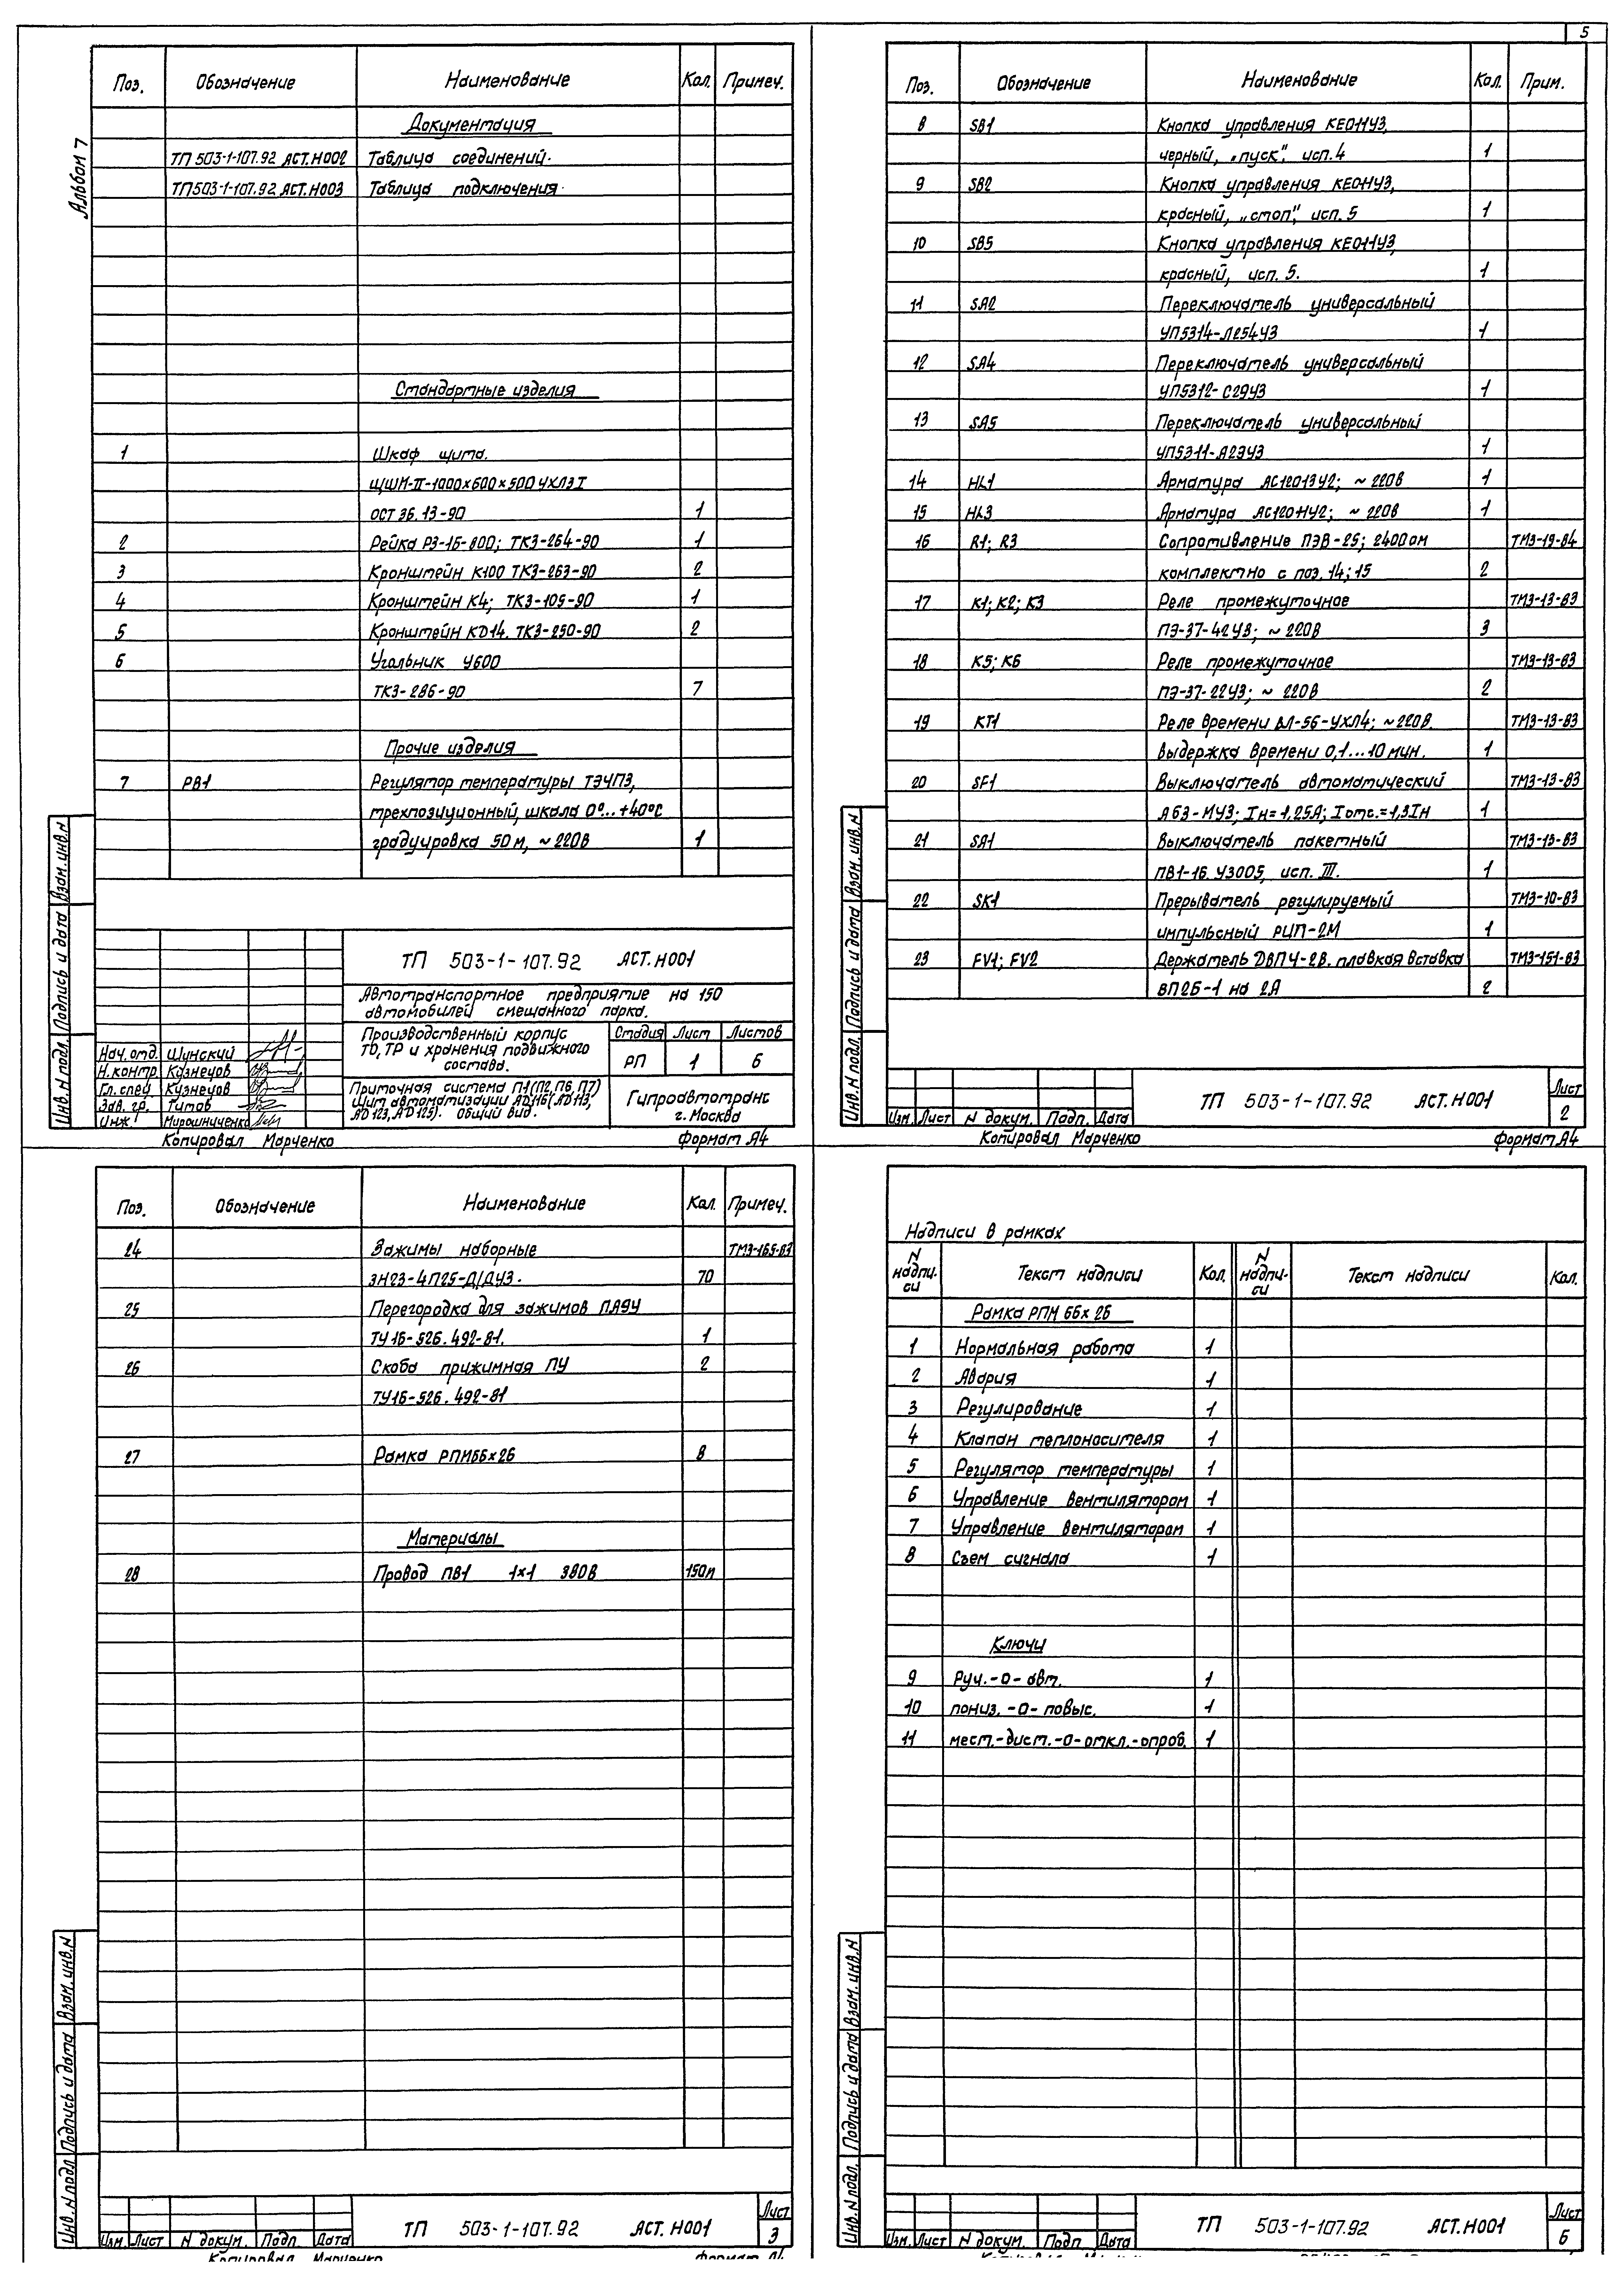 5
Альбом 7
Поз. Обозначение Наименование Кол. Примеч.
Документация
ТП 503-1-107.92 АСТ.Н002 Таблица соединений.
ТП 503-1-107.92 АСТ.Н003 Таблица подключения.
Стандартные изделия
1 Шкаф щита.
ЩШМ-II-1000х600х500 УХЛ3 I
ОСТ 36.13-90 1
2 Рейка Р3-15-800; ТК3-264-90 1
3 Кронштейн К100 ТК3-263-90 2
4 Кронштейн К4; ТК3-105-90 1
5 Кронштейн КD14. ТК3-250-90 2
6 Угольник У600
ТК3-286-90 7
Прочие изделия
7 РВ1 Регулятор температуры ТЭ4П3,
трехпозиционный, шкала 0°...+40°С
градуировка 50м, ~220В 1
ТП 503-1-107.92 АСТ.Н001
Автотранспортное предприятие на 150
автомобилей смешанного парка.
Производственный корпус
ТО, ТР и хранения подвижного
состава.
Стадия Лист Листов
РП 1 6
Нач.отд. Шунский
Н.контр. Кузнецов
Гл.спец. Кузнецов
Зав. гр. Титов
Инж. Мирошниченко
Приточная система П1(П2,П6,П7)
Щит автоматизации AD116(AD113,
AD123,AD125). Общий вид.
Гипроавтотранс
г. Москва
Инв.N подл. Подпись и дата Взам.инв.N
Копировал Марченко Формат А4
Поз. Обозначение Наименование Кол. Прим.
8 SB1 Кнопка управления КЕ011У3,
черный, „пуск", исп.4 1
9 SB2 Кнопка управления КЕ011У3,
красный, „стоп", исп.5 1
10 SB5 Кнопка управления КЕ011У3,
красный, исп. 5. 1
11 SA2 Переключатель универсальный
УП5314-Л254У3 1
12 SA4 Переключатель универсальный
УП5312-С29У3 1
13 SA5 Переключатель универсальный
УП5311-А23У3 1
14 HL1 Арматура АС12013У2; ~220В 1
15 HL3 Арматура АС12011У2; ~220В 1
16 R1; R3 Сопротивление ПЭВ-25; 2400ом ТМ3-19-84
комплектно с поз.14;15 2
17 К1; К2; К3 Реле промежуточное ТМ3-13-83
ПЭ-37-42У3; ~220В 3
18 К5; К6 Реле промежуточное ТМ3-13-83
ПЭ-37-22У3; ~220В 2
19 КТ1 Реле времени ВЛ-56-УХЛ4; ~220В. ТМ3-13-83
выдержка времени 0,1...10мин. 1
20 SF1 Выключатель автоматический ТМ3-13-83
А63-МУ3; Iн=1,25А; Iотс.=1,3Iн 1
21 SA1 Выключатель пакетный ТМ3-13-83
ПВ1-16. У3005, исп. III. 1
22 SK1 Прерыватель регулируемый ТМ3-10-83
импульсный РИП-2М 1
23 FV1; FV2 Держатель ДВП4-2В. плавкая вставка ТМ3-151-83
ВП2Б-1 на 2А 2
Изм. Лист N докум. Подп. Дата
ТП 503-1-107.92 АСТ.Н001
Лист
2
Инв.N подл. Подпись и дата Взам.инв.N
Копировал Марченко Формат А4
Поз. Обозначение Наименование Кол. Примеч.
24 Зажимы наборные ТМ3-165-83
ЗН23-4П25-Д/ДУ3. 70
25 Перегородка для зажимов ПА9У
ТУ16-526.492-81. 1
26 Скоба прижимная ПУ 2
ТУ16-526.492-81
27 Рамка РПМ66х26 8
Материалы
28 Провод ПВ1 1х1 380В 150м
Изм. Лист N докум. Подп Дата
ТП 503-1-107.92 АСТ.Н001
Лист
3
Инв.N подл Подпись и дата Взам.инв.N
Копировал Марченко Формат А4
Надписи в рамках
N надпи-си Текст надписи Кол. N надпи-си Текст надписи Кол.
Рамка РПМ 66х26
1 Нормальная работа 1
2 Авария 1
3 Регулирование 1
4 Клапан теплоносителя 1
5 Регулятор температуры 1
6 Управление вентилятором 1
7 Управление вентилятором 1
8 Съем сигнала 1
Ключи
9 Руч.-о-авт. 1
10 пониз.-о-повыс. 1
11 мест.-дист.-о-откл.-опроб. 1
Изм. Лист N докум. Подп Дата
ТП 503-1-107.92 АСТ.Н001
Лист
6
Инв.N подл. Подпись и дата Взам.инв.N